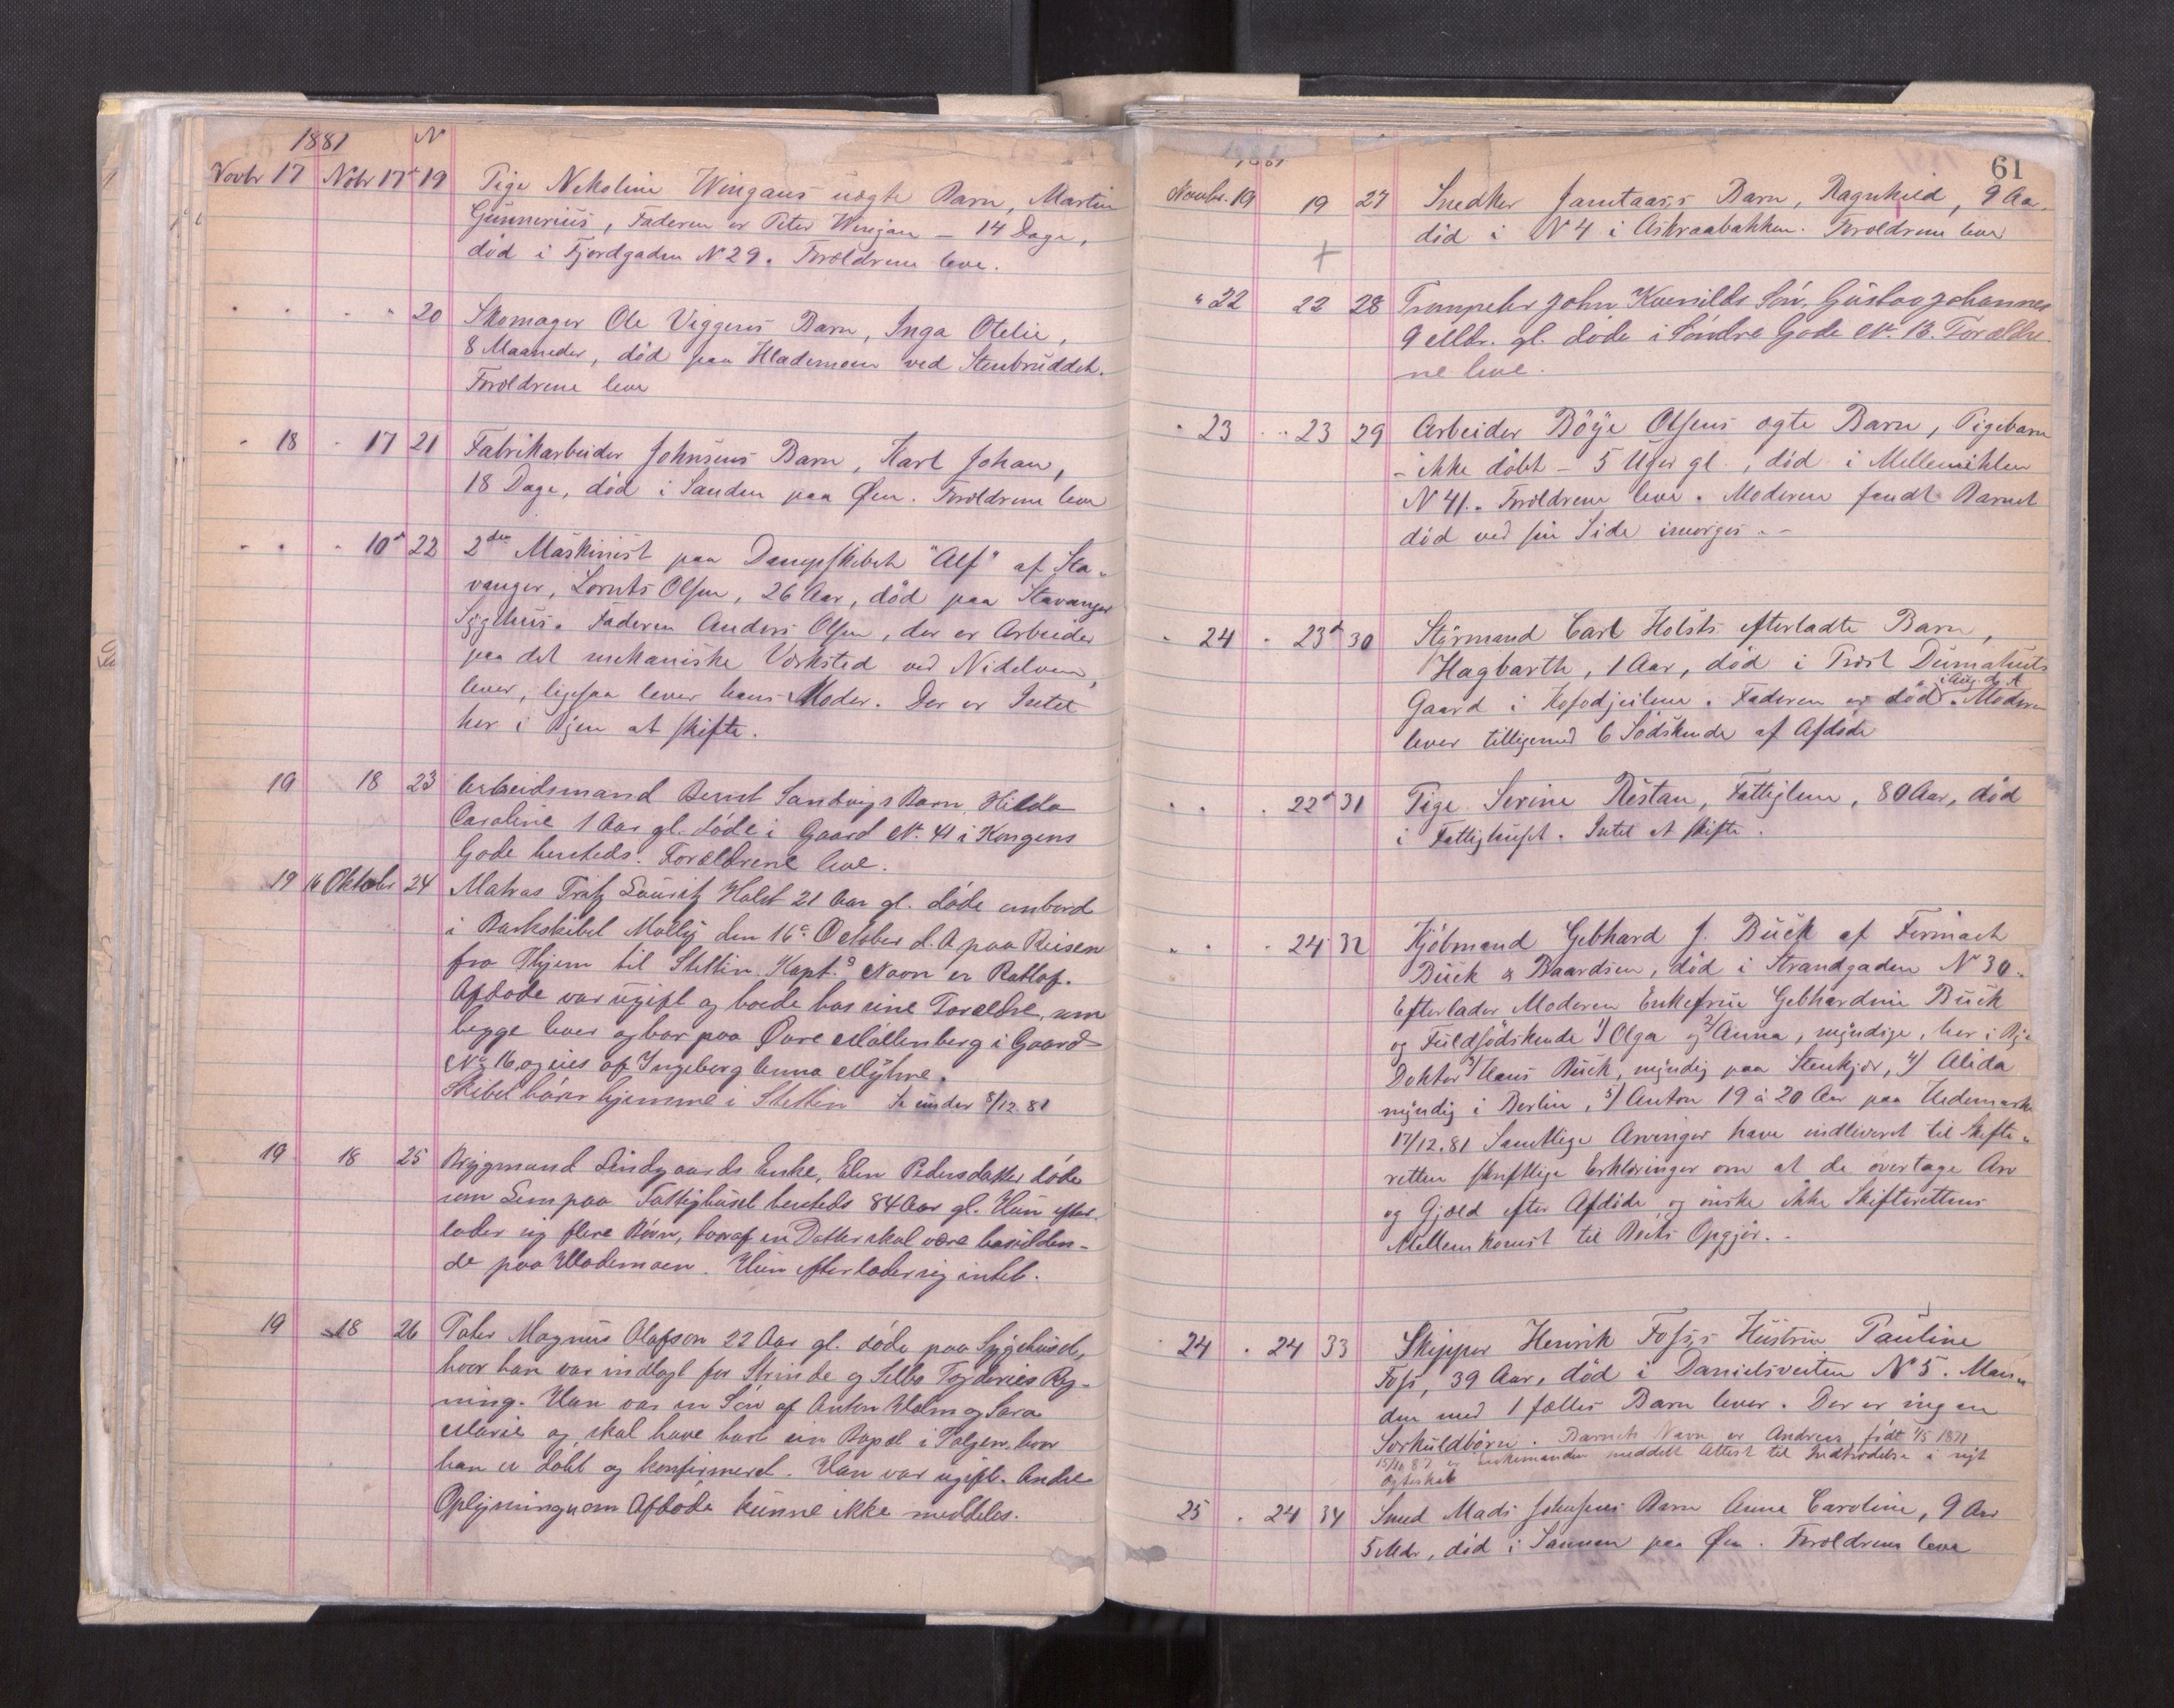 1881 N
Novbr 17 Nobr 17d 19 Pige Nekoline Wingans uægte Barn, Martin
Gunnerius, Faderen er Peter Wingan — 14 Dage,
død i Fjordgaden N 29. Forældrene leve.
" " " " 20 Skomager Ole Viggens Barn, Inga Otelie,
8 Maaneder, død paa Hlademoen ved Stenbruddet.
Forældrene leve
" 18 " 17 21 Fabrikarbeider Johnsens Barn, Karl Johan,
18 Dage, død i Sanden paa Øen. Forældrene leve
" " " 10d 22 2den Maskinist paa Dampskibet "Alf" af Sta-
vanger, Lornts Olsen, 26 Aar, død paa Stavanger
Sygehus. Faderen Anders Olsen, der er Arbeider
paa det mekaniske Værksted ved Nidelven,
lever, ligesaa lever hans Moder. Der er Intet
her i Byen at skifte.
19 18 23 Arbeidsmand Bernt Sandvigs Barn Hilda
Caroline 1 Aar gl. døde i Gaard No. 41 i Kongens
Gade hersteds. Forældrene leve.
19 16 Oktober 24 Matros Fritz Lauritz Holst 21 Aar gl. døde ombord
i Barkskibet Molly den 16de October d. A paa Reisen
fra Thjem til Stettin. Kapt.s Navn er Ratlof.
Afdøde var ugift og boede hos sine Forældre, som
begge lever og bor paa Øvre Møllenberg i Gaard
No 16 og eies af Ingeborg Anna Myhre.
Skibet hører hjemme i Stettin Se under 8/12.81
19 18 25 Brygmand Lindgaards Enke, Elen Pedersdatter døde
som Lem paa Fattighuset hersteds 84 Aar gl. Hun efter-
lader sig flere Børn, hvoraf en Datter skal være bosidden-
de paa Hlademoen. Hun efterlader sig intet.
19 18 26 Tater Magnus Olafson 22 Aar gl. døde paa Sygehuset,
hvor han var indlagt for Strinde og Selbo Fogderies Reg-
ning. Han var en Søn af Anton Holm og Sara
Marie og skal have havt sin Bopæl i Tolgen, hvor
han er døbt og konfirmeret. Han var ugift. Andre
Oplysninger om Afdøde kunne ikke meddeles.
1881 61
Novbr. 19 19 27 Snedker Jamtaas's Barn, Ragnhild, 9 Aa.
død i N 4 i Askraabakken. Forældrene leve
" 22 22 28 Trompeter John Kvenilds Søn, Gustav Johannes
9 Mdr. gl. døde i Søndre Gade No. 13. Forældre-
ne leve.
" 23 " 23 29 Arbeider Böye Olsens ægte Barn, Pigebarn
— ikke døbt — 5 Uger gl., død i Mellemihlen
N 41. Forældrene leve. Moderen fandt Barnet
død ved sin Side imorges. —
" 24 " 23d 30 Styrmand Carl Holsts efterladte Barn,
Hagbarth, 1 Aar, død i Prost
Gaard i . Faderen er død i Aug. d. A. Moderen
lever tilligemed 6 Sødskende af Afdøde
" " " 22d 31 Pige Serine Ristan, Fattiglem, 80 Aar, død
i Fattighuset. Intet at skifte.
" " " 24 32 Kjøbmand Gebhard J. Buck af Firmaet
Buck & Baardsen, død i Strandgaden N 30.
Efterlader Moderen Enkefrue Gebhardine Buck
og Fuldsødskende 1/ Olga og 2/ Anna, myndige, her i Bye
Doktor 3/ Hans Buck, myndig paa Stenkjær, 4/ Alida
myndig i Berlin, 5/ Anton 19 à 20 Aar paa Hedemark
17/12.81 Samtlige Arvinger have indleveret til Skifte-
retten skriftlige Erklæringer om at de overtage Arv
og Gjæld efter Afdøde, og ønske ikke Skifterettens
Mellemkomst til Boets Opgjør.
" 24 " 24 33 Skipper Henrik Foss's Hustru Pauline
Foss, 39 Aar, død i Danielsveiten N 5. Man-
den med 1 fælles Barn lever. Der er ingen
Særkuldbørn. Barnets Navn er Andreas, født 1/5 1871
15/10 87 er Enkemanden meddelt Attest til Indtrædelse i nyt
Ægteskab
25 " 24 34 Smed Mads Johnsens Barn Anne Caroline, 9 Aar
5 Mdr, død i Sannen paa Øen. Forældrene leve